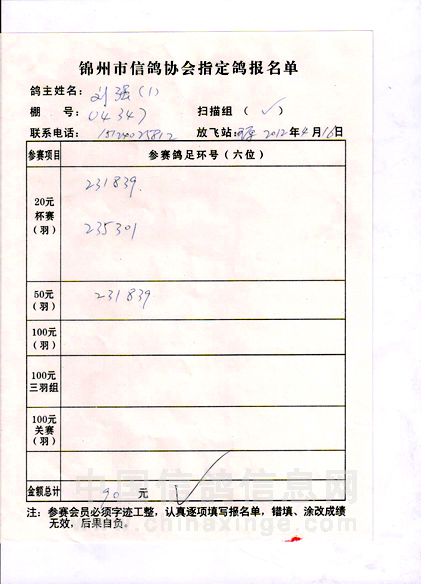 锦州市信鸽协会指定鸽报名单
鸽主姓名: 刘强(1)
棚 号: 04347 扫描组 ( ✓ )
联系电话: 放飞站: 2012年4月16日
参赛项目 参赛鸽足环号(六位)
20元 231839.
杯赛
(羽) 235301
50元 231839
(羽)
100元
(羽)
100元
三羽组
100元
关赛
(羽)
中国信鸽信息网
金额总计 90 元 ✓
www.chinaxinge.com
注: 参赛会员必须字迹工整,认真逐项填写报名单,错填、涂改成绩
无效,后果自负。